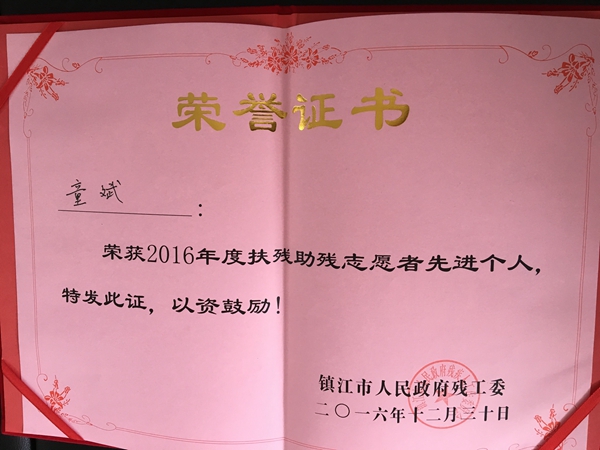 荣誉证书
童斌：
荣获2016年度扶残助残志愿者先进个人，
特发此证，以资鼓励！
镇江市人民政府残工委
二〇一六年十二月三十日